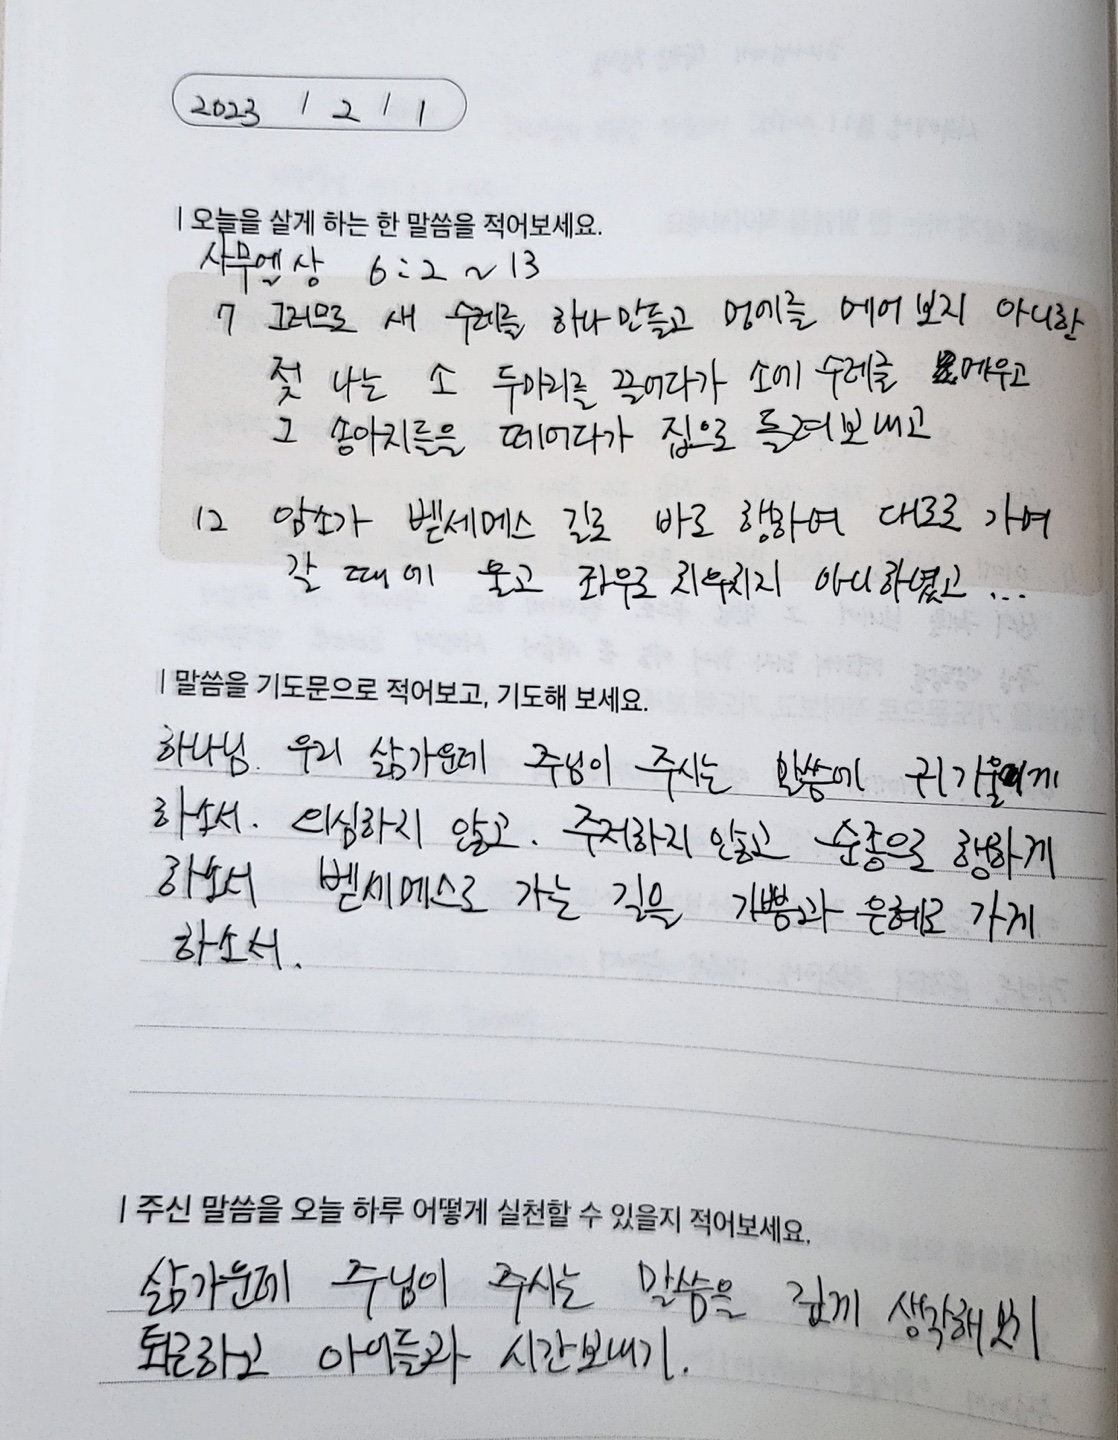 2023 / 2 / 1
| 오늘을 살게 하는 한 말씀을 적어보세요.
사무엘상 6:2~13
7 그러므로 새 수레를 하나 만들고 멍에를 메어 보지 아니한
젖 나는 소 두마리를 끌어다가 소에 수레를 메우고
그 송아지들을 떼어다가 집으로 돌려보내고
12 암소가 벧세메스 길로 바로 행하여 대로로 가며
갈 때에 울고 좌우로 치우치지 아니하였고...
| 말씀을 기도문으로 적어보고, 기도해 보세요.
하나님. 우리 삶가운데 주님이 주시는 말씀에 귀 기울이게
하소서. 의심하지 않고. 주저하지 않고 순종으로 행하게
하소서 벧세메스로 가는 길을 기쁨과 은혜로 가게
하소서.
| 주신 말씀을 오늘 하루 어떻게 실천할 수 있을지 적어보세요.
삶가운데 주님이 주시는 말씀을 깊게 생각해 보기
퇴근하고 아이들과 시간보내기.